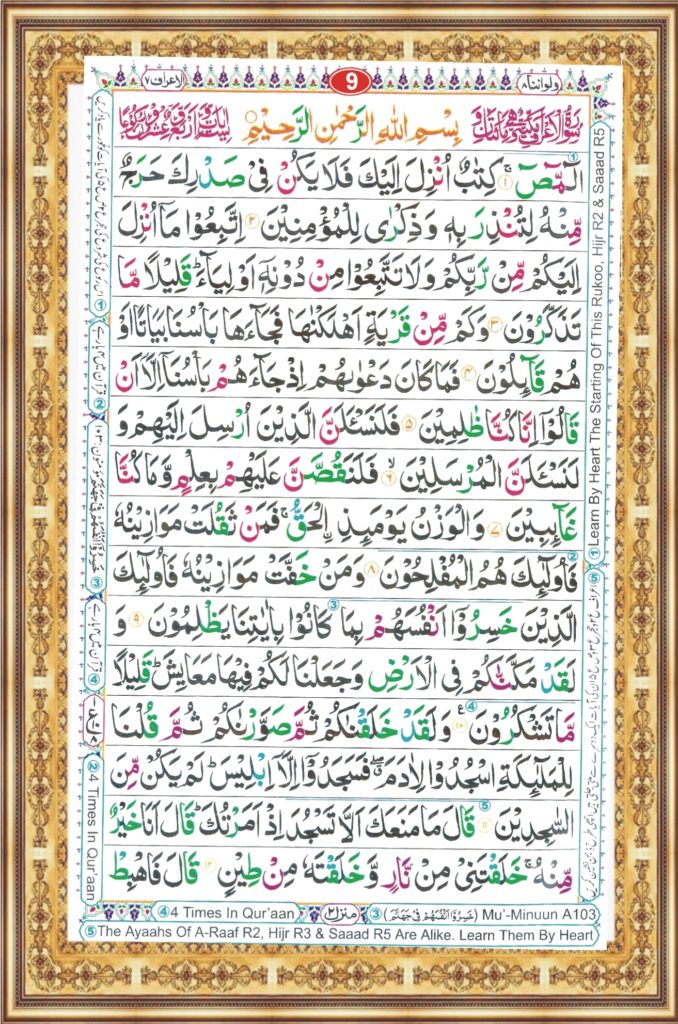 الاعراف ٧
9
ولواننا ٨
بِسْمِ اللهِ الرَّحْمٰنِ الرَّحِيْمِ
الٓمّٓصٓ ۚ ۱ كِتٰبٌ اُنْزِلَ اِلَيْكَ فَلَا يَكُنْ فِيْ صَدْرِكَ حَرَجٌ
مِّنْهُ لِتُنْذِرَ بِهٖ وَذِكْرٰى لِلْمُؤْمِنِيْنَ ۲ اِتَّبِعُوْا مَاۤ اُنْزِلَ
اِلَيْكُمْ مِّنْ رَّبِّكُمْ وَلَا تَتَّبِعُوْا مِنْ دُوْنِهٖۤ اَوْلِيَآءَ ؕ قَلِيْلًا مَّا
تَذَكَّرُوْنَ ۳ وَكَمْ مِّنْ قَرْيَةٍ اَهْلَكْنٰهَا فَجَآءَهَا بَاْسُنَا بَيَاتًا اَوْ
هُمْ قَآئِلُوْنَ ۴ فَمَا كَانَ دَعْوٰىهُمْ اِذْ جَآءَهُمْ بَاْسُنَاۤ اِلَّاۤ اَنْ
قَالُوْۤا اِنَّا كُنَّا ظٰلِمِيْنَ ۵ فَلَنَسْـَٔلَنَّ الَّذِيْنَ اُرْسِلَ اِلَيْهِمْ وَ
لَنَسْـَٔلَنَّ الْمُرْسَلِيْنَ ۙ ۶ فَلَنَقُصَّنَّ عَلَيْهِمْ بِعِلْمٍ وَّمَا كُنَّا
غَآئِبِيْنَ ۷ وَالْوَزْنُ يَوْمَئِذِ اِۨلْحَقُّ ۚ فَمَنْ ثَقُلَتْ مَوَازِيْنُهٗ
فَاُولٰٓئِكَ هُمُ الْمُفْلِحُوْنَ ۸ وَمَنْ خَفَّتْ مَوَازِيْنُهٗ فَاُولٰٓئِكَ
الَّذِيْنَ خَسِرُوْۤا اَنْفُسَهُمْ بِمَا كَانُوْا بِاٰيٰتِنَا يَظْلِمُوْنَ ۹ وَ
لَقَدْ مَكَّنّٰكُمْ فِي الْاَرْضِ وَجَعَلْنَا لَكُمْ فِيْهَا مَعَايِشَ ؕ قَلِيْلًا
مَّا تَشْكُرُوْنَ ۱۰ وَلَقَدْ خَلَقْنٰكُمْ ثُمَّ صَوَّرْنٰكُمْ ثُمَّ قُلْنَا
لِلْمَلٰٓئِكَةِ اسْجُدُوْا لِاٰدَمَ ۖ فَسَجَدُوْۤا اِلَّاۤ اِبْلِيْسَ ؕ لَمْ يَكُنْ مِّنَ
السّٰجِدِيْنَ ۱۱ قَالَ مَا مَنَعَكَ اَلَّا تَسْجُدَ اِذْ اَمَرْتُكَ ؕ قَالَ اَنَا خَيْرٌ
مِّنْهُ ۚ خَلَقْتَنِيْ مِنْ نَّارٍ وَّخَلَقْتَهٗ مِنْ طِيْنٍ ۱۲ قَالَ فَاهْبِطْ
① Learn By Heart The Starting Of This Rukoo, Hijr R2 & Saaad R5
② 4 Times In Qur'aan
④ 4 Times In Qur'aan
منزل ٢
③ (خَسِرُوْۤا اَنْفُسَهُمْ فِيْ جَهَنَّمَ) Mu'-Minuun A103
⑤ The Ayaahs Of A-Raaf R2, Hijr R3 & Saaad R5 Are Alike. Learn Them By Heart